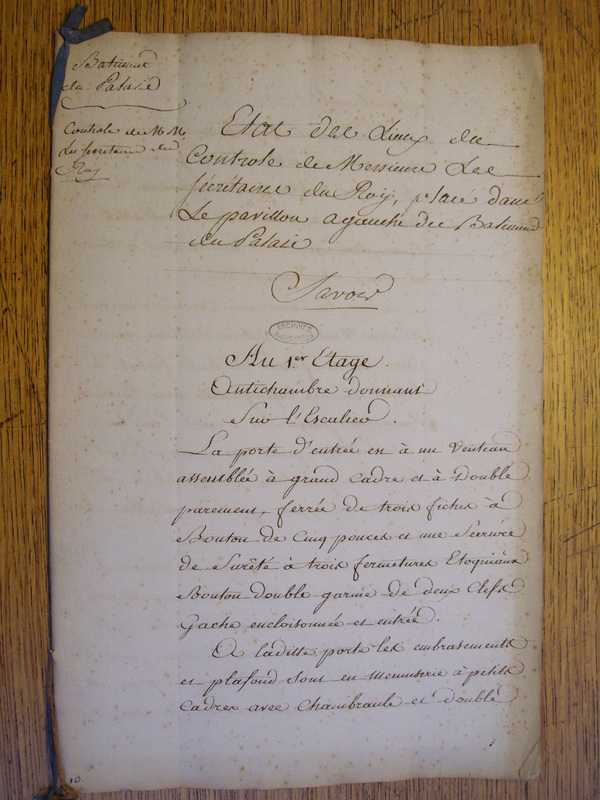 Batiment
du Palais
Controle de MM.
Les secretaires du
Roy
Etat des Lieux du
Controle de Messieurs Les
secrétaires du Roy, placé dans
Le pavillon agauche des Batiments
du Palais
Savoir
ARCHIVES
NATIONALES
Au 1er Etage.
Antichambre donnant
Sur l'Escalier.
La porte d'entrée est à un Venteau
assemblée à grand cadre et à Double
parement, ferrée de trois fiches à
Bouton de Cinq pouces et une Serrure
de Surêté à trois fermetures
Bouton double garnie de deux Clefs
Gache encloisonnée et entrée.
A laditte porte les embrasements
et plafond sont en menuiserie à petits
cadres avec Chambranle et double
10.